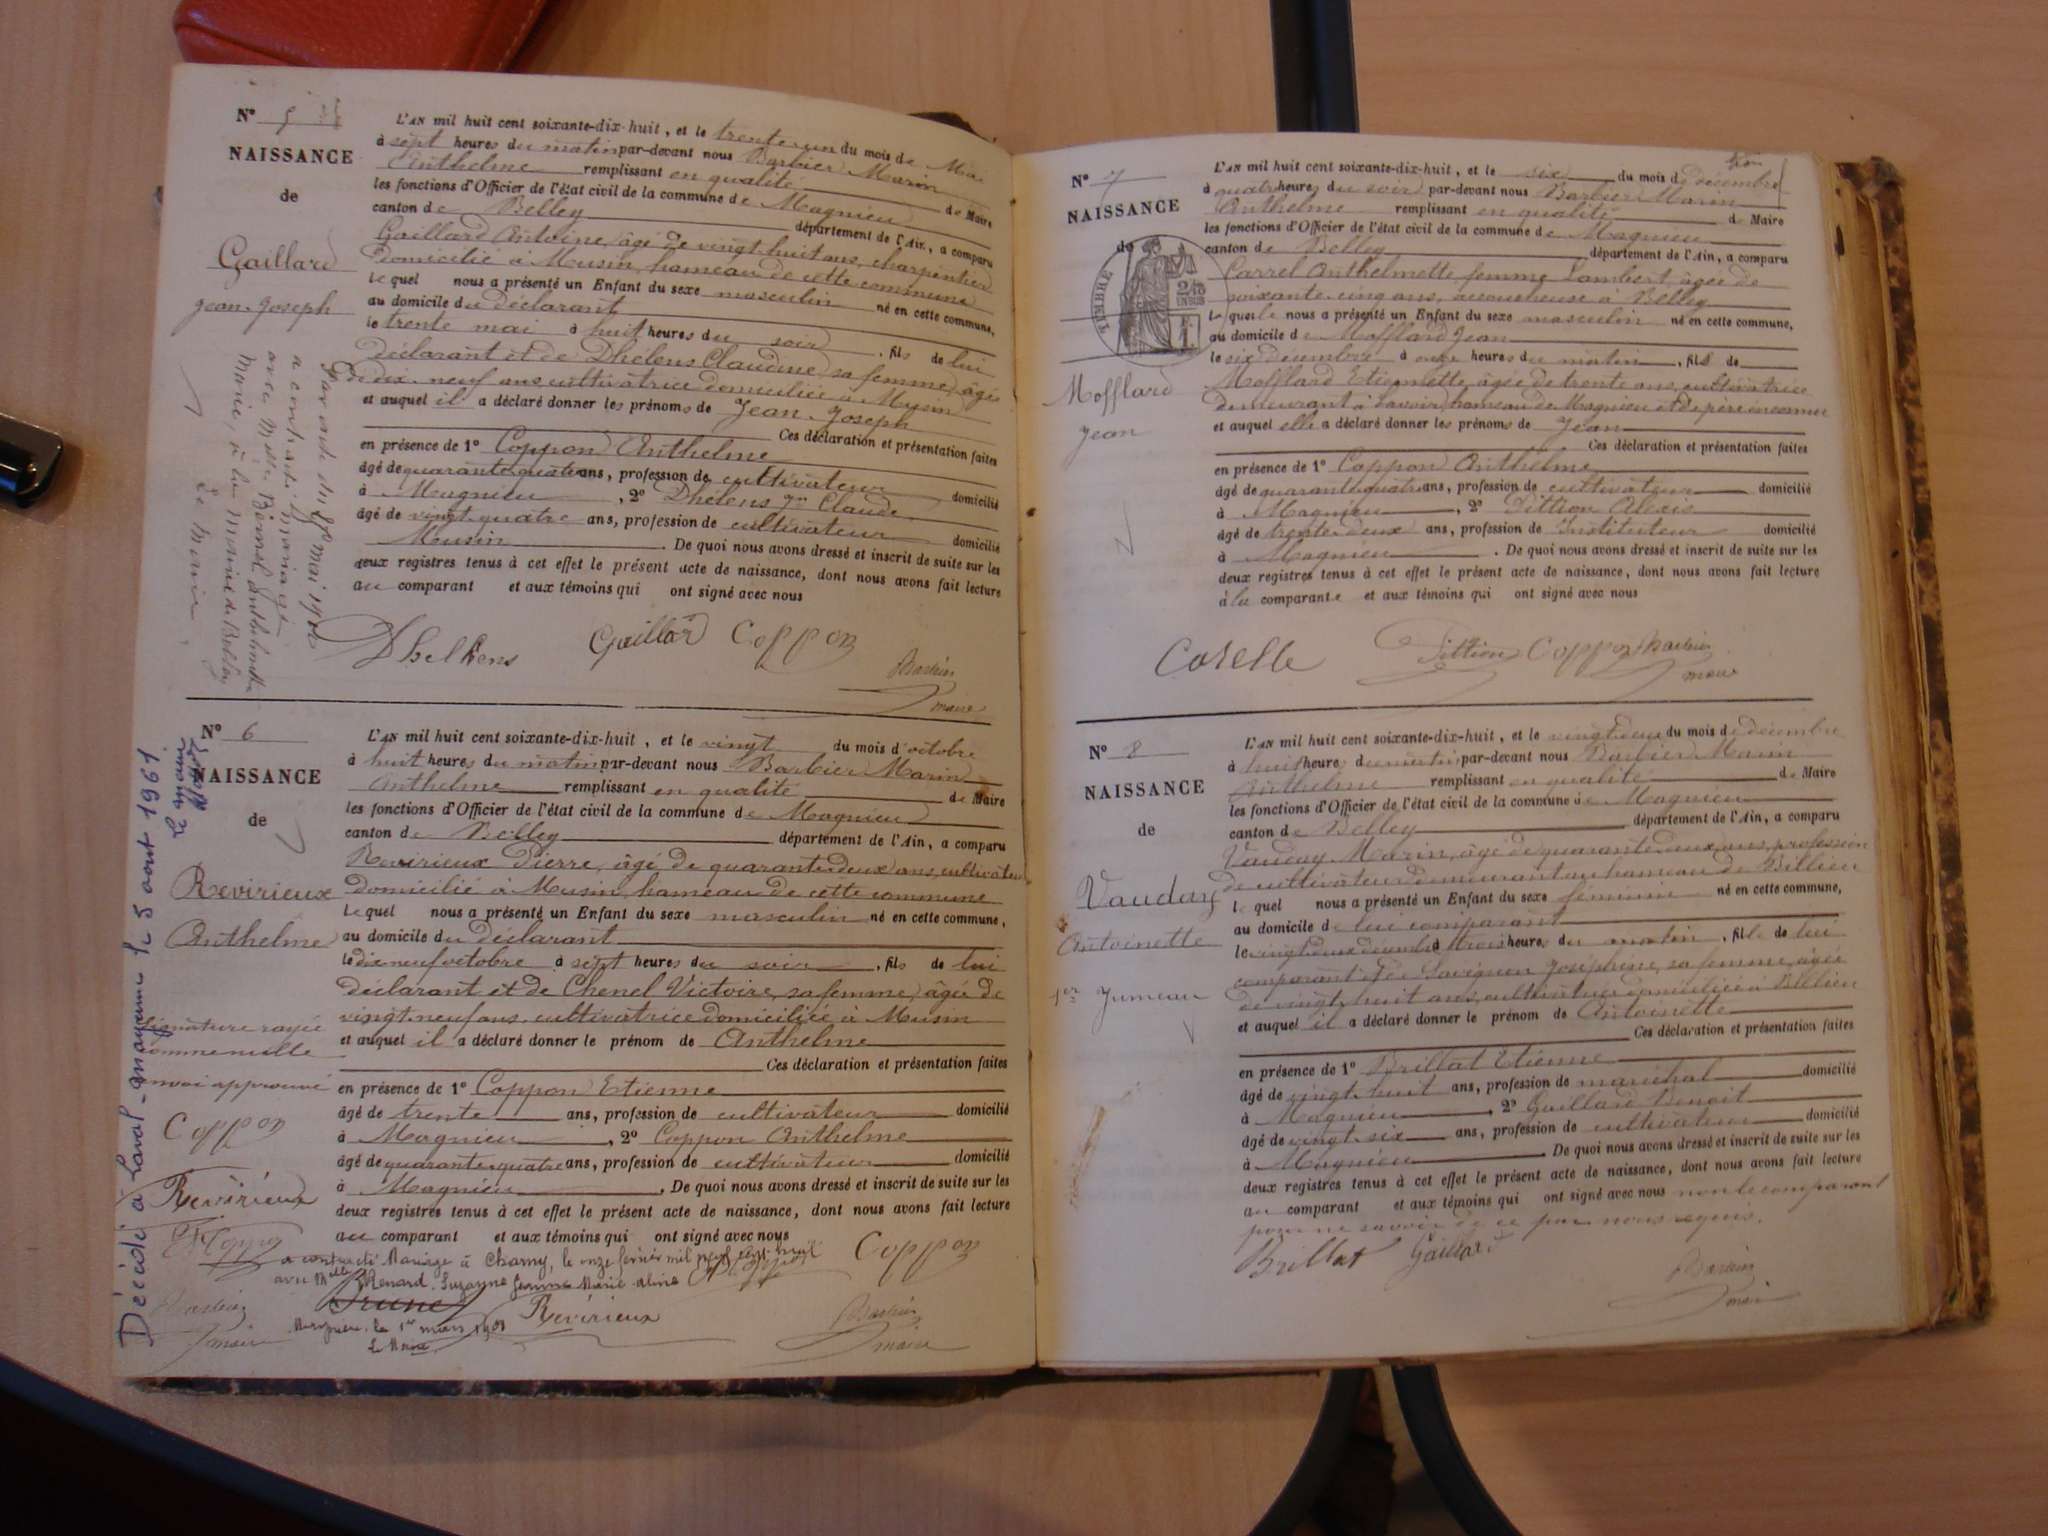 Nº 5
NAISSANCE
de
Gaillard
Jean-Joseph
L'AN mil huit cent soixante-dix-huit, et le trente-un du mois de Mai
à sept heures du matin par-devant nous Barbier Marin
Anthelme remplissant en qualité de Maire
les fonctions d'Officier de l'état civil de la commune de Magnieu
canton de Belley département de l'Ain, a comparu
Gaillard Antoine, âgé de vingt-huit ans, charpentier
domicilié à Musin, hameau de cette commune
lequel nous a présenté un Enfant du sexe masculin né en cette commune,
au domicile du déclarant
le trente mai à huit heures du soir, fils de lui
déclarant et de Dhelens Claudine, sa femme, âgée
de dix-neuf ans cultivatrice domiciliée à Musin
et auquel il a déclaré donner les prénoms de Jean-Joseph
Ces déclaration et présentation faites
en présence de 1º Coppon Anthelme
âgé de quarante-quatre ans, profession de cultivateur domicilié
à Magnieu, 2º Dhelens Claude
âgé de vingt-quatre ans, profession de cultivateur domicilié
Musin. De quoi nous avons dressé et inscrit de suite sur les
deux registres tenus à cet effet le présent acte de naissance, dont nous avons fait lecture
au comparant et aux témoins qui ont signé avec nous
Dhelhens Gaillard Coppon
Barbier
maire
a contracté mariage
Marie, à la Mairie de Belley
Le Maire,
Nº 6
NAISSANCE
de
Revirieux
Anthelme
L'AN mil huit cent soixante-dix-huit, et le vingt du mois d'octobre
à huit heures du matin par-devant nous Barbier Marin
Anthelme remplissant en qualité de Maire
les fonctions d'Officier de l'état civil de la commune de Magnieu
canton de Belley département de l'Ain, a comparu
Revirieux Pierre, âgé de quarante-deux ans, cultivateur
domicilié à Musin, hameau de cette commune
lequel nous a présenté un Enfant du sexe masculin né en cette commune,
au domicile du déclarant
le dix-neuf octobre à sept heures du soir, fils de lui
déclarant et de Chenel Victoire, sa femme, âgée de
vingt-neuf ans, cultivatrice domiciliée à Musin
et auquel il a déclaré donner le prénom de Anthelme
Ces déclaration et présentation faites
en présence de 1º Coppon Etienne
âgé de trente ans, profession de cultivateur domicilié
à Magnieu, 2º Coppon Anthelme
âgé de quarante-quatre ans, profession de cultivateur domicilié
à Magnieu. De quoi nous avons dressé et inscrit de suite sur les
deux registres tenus à cet effet le présent acte de naissance, dont nous avons fait lecture
au comparant et aux témoins qui ont signé avec nous
a contracté Mariage à Charny, le onze février mil neuf cent huit
avec Mlle Renard Suzanne Jeanne Marie
Coppon
Revirieux
Magnieu, le 1er mars 1908
Le Maire
Barbier
maire
Signature rayée
comme nulle
renvoi approuvé
Coppon
Revirieux
Barbier
maire
Décédé à Laval le 5 août 1961
Le maire
Nº 7
NAISSANCE
de
TIMBRE
Mofflard
Jean
L'AN mil huit cent soixante-dix-huit, et le six du mois de décembre
à quatre heures du soir par-devant nous Barbier Marin
Anthelme remplissant en qualité de Maire
les fonctions d'Officier de l'état civil de la commune de Magnieu
canton de Belley département de l'Ain, a comparu
Carrel Anthelmette, femme Lambert, âgée de
soixante-cinq ans, accoucheuse à Belley
Laquelle nous a présenté un Enfant du sexe masculin né en cette commune,
au domicile de Mofflard Jean
le six décembre à onze heures du matin, fils de
Mofflard Etiennette, âgée de trente ans, cultivatrice
demeurant à Savoir, hameau de Magnieu et de père inconnu
et auquel elle a déclaré donner les prénoms de Jean
Ces déclaration et présentation faites
en présence de 1º Coppon Anthelme
âgé de quarante-quatre ans, profession de cultivateur domicilié
à Magnieu, 2º Pittion Alexis
âgé de trente-deux ans, profession de Instituteur domicilié
à Magnieu. De quoi nous avons dressé et inscrit de suite sur les
deux registres tenus à cet effet le présent acte de naissance, dont nous avons fait lecture
à la comparante et aux témoins qui ont signé avec nous
Carelle Pittion Coppon Barbier
maire
Nº 8
NAISSANCE
de
Vauday
Antoinette
1er Jumeau
L'AN mil huit cent soixante-dix-huit, et le vingt-deux du mois de décembre
à huit heures du matin, par-devant nous Barbier Marin
Anthelme remplissant en qualité de Maire
les fonctions d'Officier de l'état civil de la commune de Magnieu
canton de Belley département de l'Ain, a comparu
Vauday Marin, âgé de quarante-deux ans, profession
de cultivateur demeurant au hameau de Billieu
Lequel nous a présenté un Enfant du sexe féminin né en cette commune,
au domicile de lui comparant
le vingt-deux décembre à trois heures du matin, fille de lui
comparant et de Savignon Joséphine, sa femme, âgée
de vingt-huit ans, cultivatrice domiciliée à Billieu
et auquel il a déclaré donner le prénom de Antoinette
Ces déclaration et présentation faites
en présence de 1º Brillat Etienne
âgé de vingt-huit ans, profession de maréchal domicilié
à Magnieu, 2º Gaillard Benoit
âgé de vingt-six ans, profession de cultivateur domicilié
à Magnieu. De quoi nous avons dressé et inscrit de suite sur les
deux registres tenus à cet effet le présent acte de naissance, dont nous avons fait lecture
au comparant et aux témoins qui ont signé avec nous non le comparant
pour ne savoir de ce par nous requis.
Brillat Gaillard
Barbier
maire